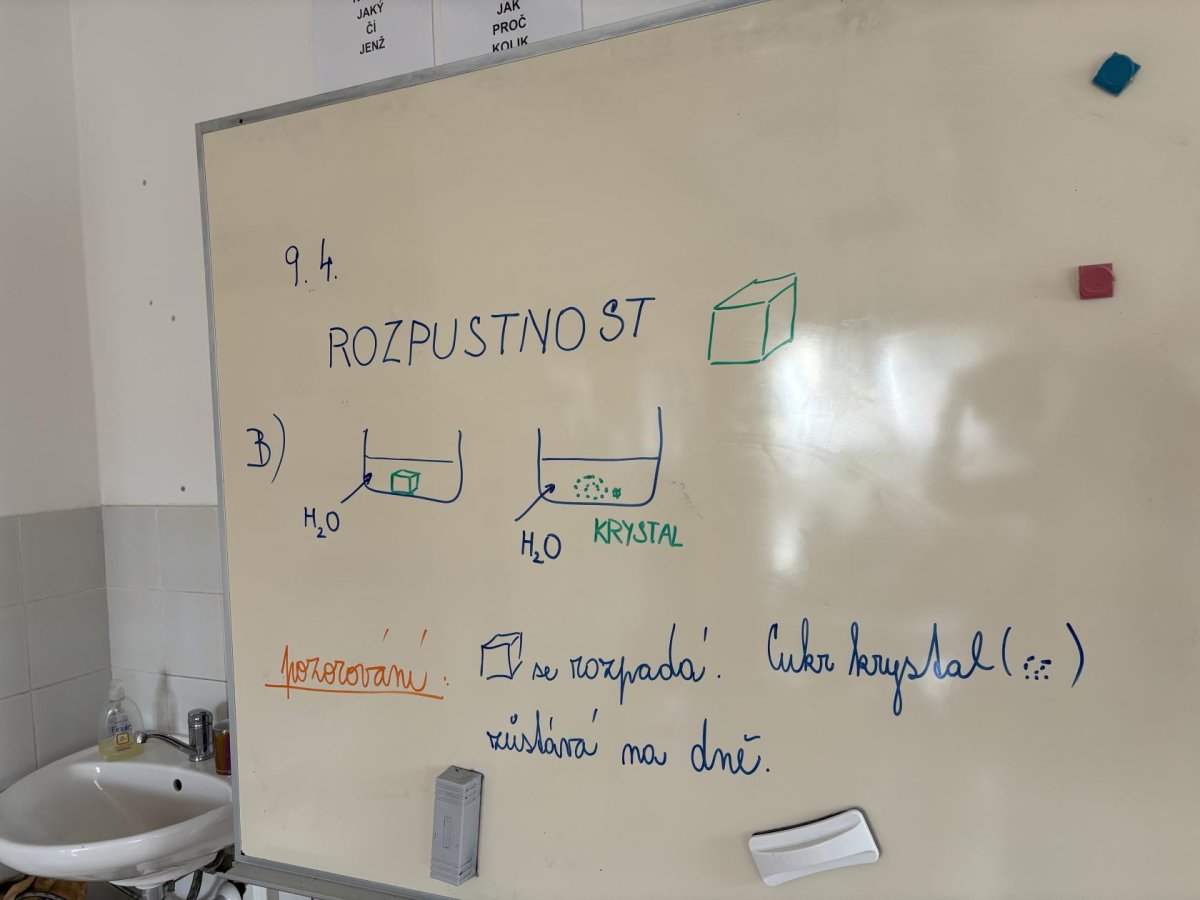 JAKÝ
ČÍ
JENŽ
JAK
PROČ
KOLIK
9. 4.
ROZPUSTNOST
B)
H₂O
H₂O
KRYSTAL
pozorování: se rozpadá. Cukr krystal ( )
zůstává na dně.
Finale